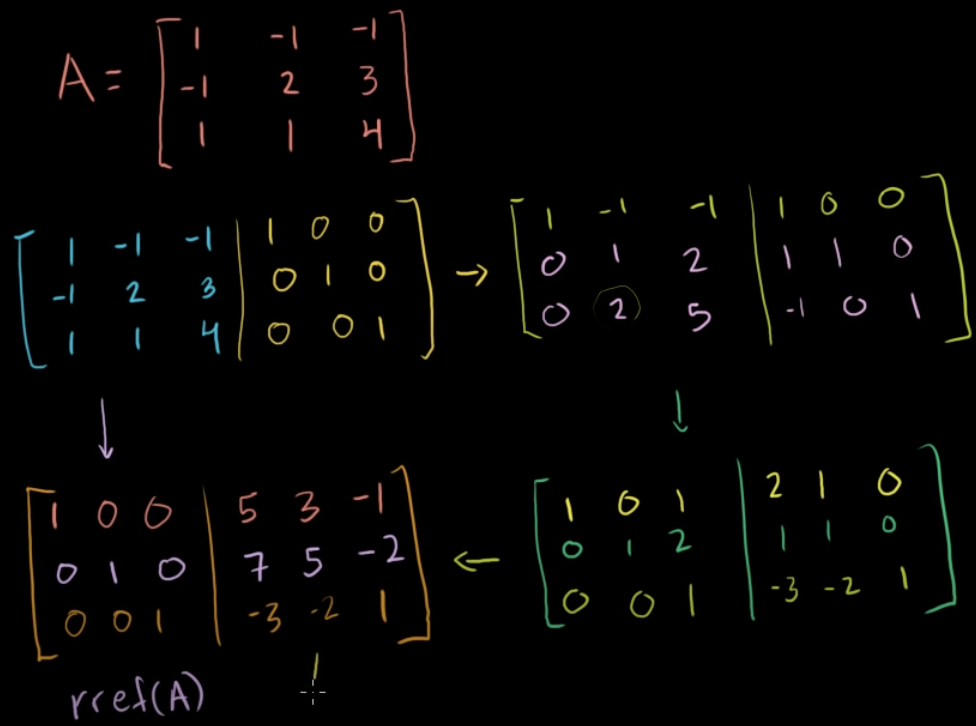 A = [ 1 -1 -1
-1 2 3
1 1 4 ]
[ 1 -1 -1 | 1 0 0
-1 2 3 | 0 1 0
1 1 4 | 0 0 1 ]
→
[ 1 -1 -1 | 1 0 0
0 1 2 | 1 1 0
0 2 5 | -1 0 1 ]
↓ ↓
[ 1 0 0 | 5 3 -1
0 1 0 | 7 5 -2
0 0 1 | -3 -2 1 ]
←
[ 1 0 1 | 2 1 0
0 1 2 | 1 1 0
0 0 1 | -3 -2 1 ]
rref(A)